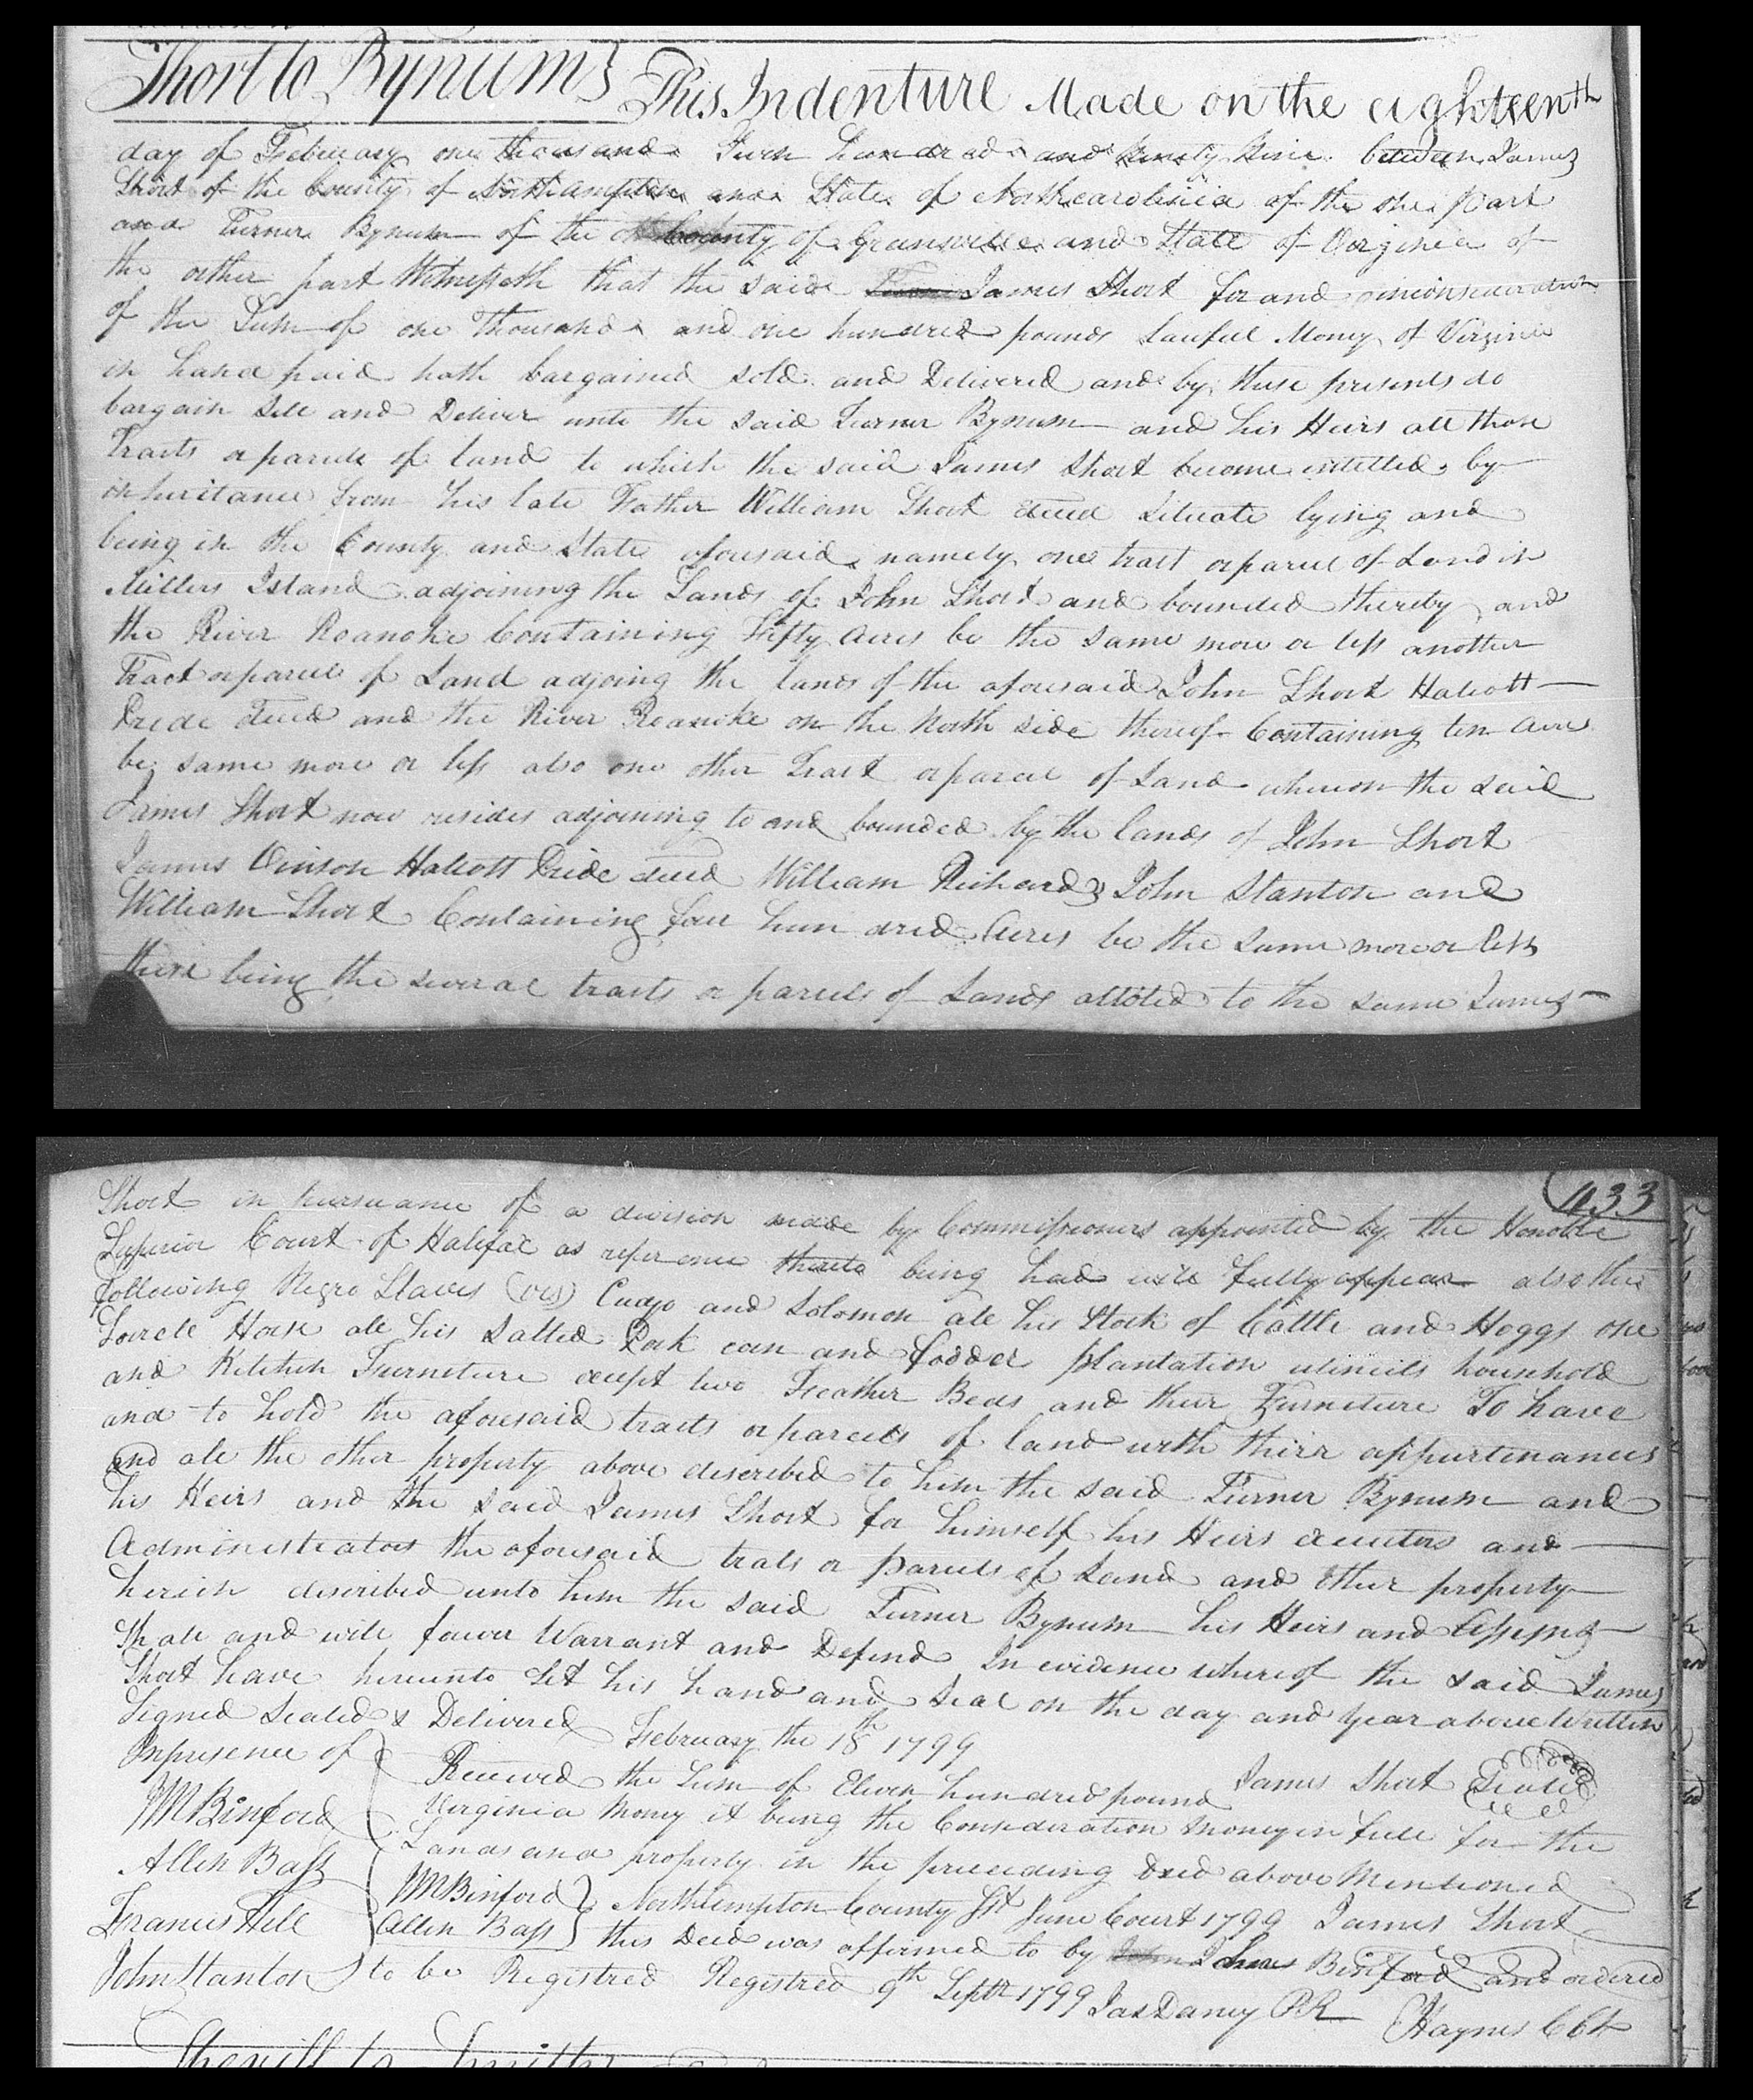 Short to Bynum} This Indenture Made on the eighteenth
day of February one thousand Seven hundred and ninety Nine between James
Short of the County of Northampton and State of Northcarolinia of the one part
and Turner Bynum of the County of Gransville and State of Virginia of
the other part Witnesseth that the said James Short for and in consideration
of the Sum of one thousand and one hundred pounds Lawful Money of Virginia
in hand paid hath bargained sold and Delivered and by these presents do
bargain Sell and Deliver unto the said Turner Bynum and his Heirs all those
Tracts or parcels of land to which the said James Short become intitled by
inheritance from his late Father William Short decd Situate lying and
being in the County and State aforesaid namely one tract or parcel of Land in
Millers Island adjoining the Lands of John Short and bounded thereby and
the River Roanoke Containing Fifty Acres be the same more or less another
Tract or parcel of Land adjoing the lands of the aforesaid John Short Halcott
Pride decd and the River Roanoke on the North side thereof Containing ten acres
be same more or less also one other Tract or parcel of Land whereon the said
James Short now resides adjoining to and bounded by the lands of John Short
James Vinson Halcott Pride decd William Richards John Stanton and
William Short Containing four hundred Acres be the same more or less
these being the several tracts or parcels of Lands alloted to the same James
433
Short in pursuance of a division made by Commissioners appointed by the Honoble
Superior Court of Halifax as reference thereto being had will fully appear also the
following Negro Slaves (viz) Cudjo and Solomon all his Stock of Cattle and Hoggs one
Sorrele Horse all his Salted Pork corn and fodder plantation utincils household
and Kitchen Furneture except two Feather Beds and their Furneture To have
and to hold the aforesaid tracts or parcels of land with thirr appurtinances
and all the other property above described to him the said Turner Bynum and
his Heirs and the said James Short for himself his Heirs executors and
Administrators the aforesaid trats or parcels of Land and other property
herein described unto him the said Turner Bynum his Heirs and Assigns
Shall and will forever Warrant and Defend In evidence whereof the said James
Short have hereunto Set his hand and Seal on the day and year above Written
Signed Sealed & Delivered February the 18th 1799
Inpresence of James Short Seale
Received the Sum of Eleven hundred pound
JM Binford Virginia Money it being the Consideration Money in full for the
Allen Bass Lands and property in the preceeding deed above Mentioned
JM Binford} Northampton County Sst June Court 1799 James Short
Francis Hill Allen Bass} this Deed was affirmed to by Binford and ordered
John Stanton to be Registred Registred 9th Septr 1799 Jas Dancy P.R Haynes CCk
Sherriff to Smith